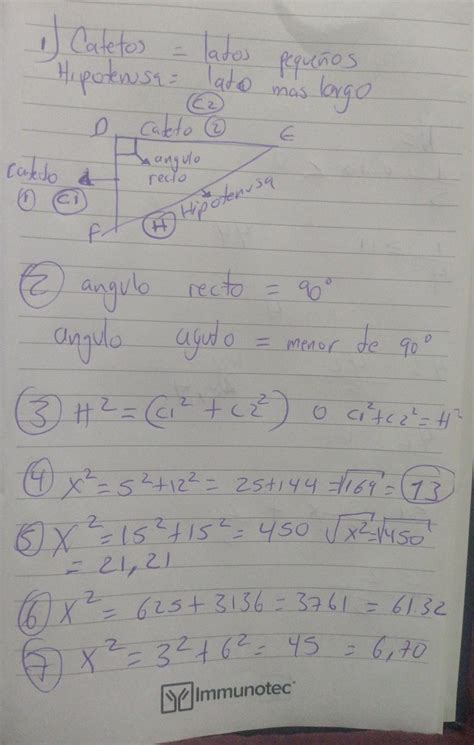 1) Catetos = lados pequeños
Hipotenusa = lado mas largo
C2
D Cateto 2 E
angulo
recto
Cateto
1 C1
Hipotenusa
F H
2 angulo recto = 90°
angulo agudo = menor de 90°
3 H² = (C1² + C2²) o C1²+C2² = H²
4 X² = 5²+12² = 25+144 = √169 = 13
5 X² = 15²+15² = 450 √X² = √450
= 21,21
6 X² = 625+3136 = 3761 = 6132
7 X² = 3²+6² = 45 = 6,70
Immunotec